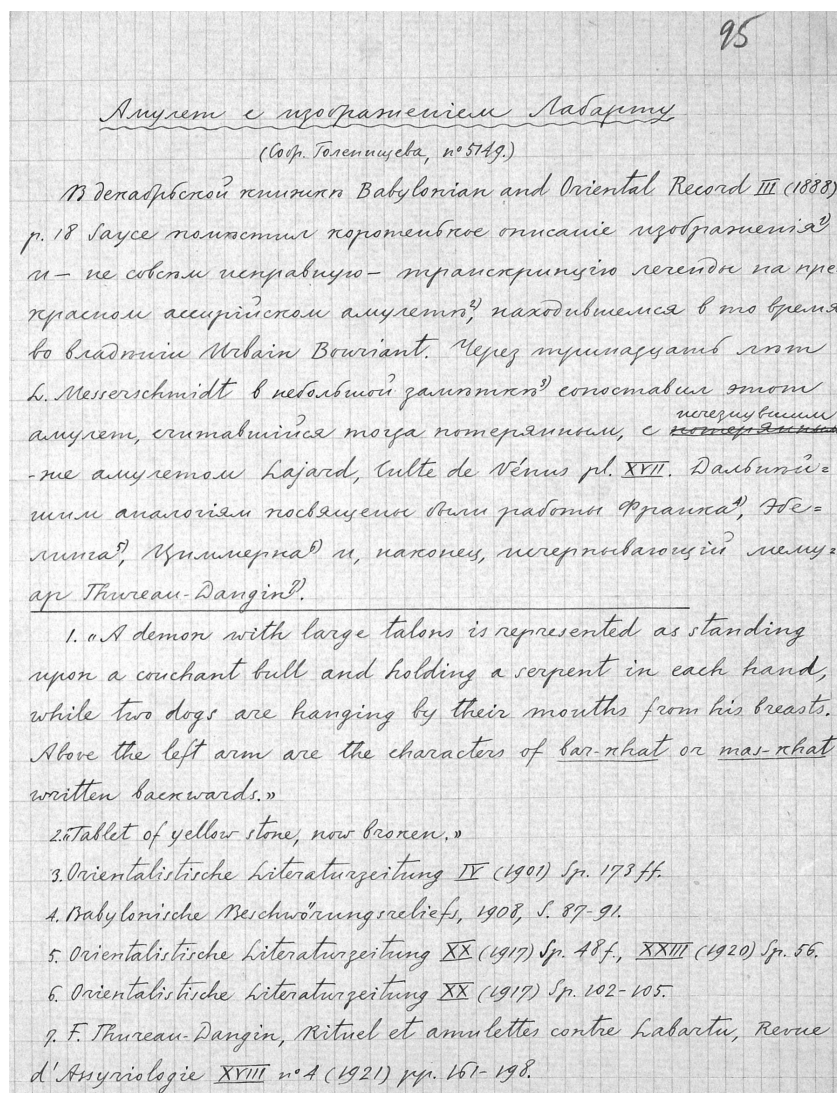 95
Амулет с изображеніем Лабарту
(Собр. Голенищева, nº 5149.)
В декабрьской книжкѣ Babylonian and Oriental Record III (1888)
p. 18 Sayce помѣстил коротенькое описаніе изображенія¹)
и – не совсѣм исправную – транскрипцію легенды на пре
красном ассирійском амулетѣ²), находившемся в то время
во владѣніи Urbain Bouriant. Через тринадцать лѣт
L. Messerschmidt в небольшой замѣткѣ³) сопоставил этот
исчезнувшим
амулет, считавшійся тогда потерянным, с потерянным
-же амулетом Lajard, Culte de Vénus pl. XVII. Дальнѣй=
шим аналогіям посвящены были работы Франка⁴), Эбе=
линга⁵), Циммерна⁶) и, наконец, исчерпывающій мему=
ар Thureau-Dangin⁷).
1. «A demon with large talons is represented as standing
upon a couchant bull and holding a serpent in each hand,
while two dogs are hanging by their mouths from his breasts.
Above the left arm are the characters of bar-khat or mas-khat
written backwards.»
2. «Tablet of yellow stone, now broken.»
3. Orientalistische Literaturzeitung IV (1901) Sp. 173 ff.
4. Babylonische Beschwörungsreliefs, 1908, S. 87-91.
5. Orientalistische Literaturzeitung XX (1917) Sp. 48 f., XXIII (1920) Sp. 56.
6. Orientalistische Literaturzeitung XX (1917) Sp. 102-105.
7. F. Thureau-Dangin, Rituel et amulettes contre Labartu, Revue
d'Assyriologie XVIII nº 4 (1921) pp. 161-198.